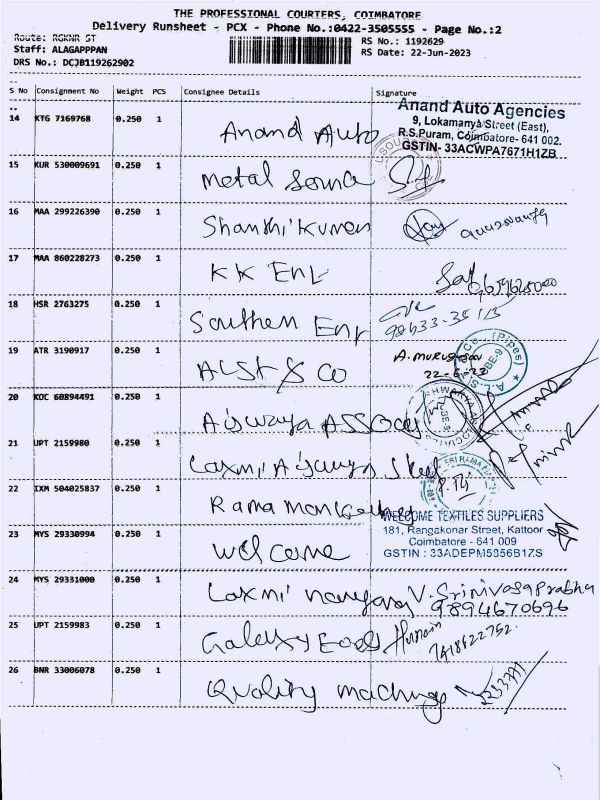 THE PROFESSIONAL COURIERS, COIMBATORE
Delivery Runsheet - PCX - Phone No.:0422-3505555 - Page No.:2
Route: RGKNR ST
RS No.: 1192629
Staff: ALAGAPPPAN
RS Date: 22-Jun-2023
DRS No.: DCJB119262902
S No Consignment No Weight PCS Consignee Details Signature
Anand Auto Agencies
9, Lokamanya Street (East),
R.S.Puram, Coimbatore- 641 002.
GSTIN- 33ACWPA7671H1ZB
14 KTG 7169768 0.250 1 Anand Auto
15 KUR 530009691 0.250 1 Metal
16 MAA 299226390 0.250 1 Shanthi Kumar
17 MAA 860228273 0.250 1 KK Enr
18 HSR 2763275 0.250 1 Southern Enr
19 ATR 3190917 0.250 1 & Co A. Murugesan
22-6-23
20 KOC 60894491 0.250 1 Aiswarya Assoc
21 UPT 2159980 0.250 1 Laxmi Steel
22 IXM 504025837 0.250 1 Rama
WELCOME TEXTILES SUPPLIERS
181, Rangakonar Street, Kattoor
Coimbatore - 641 009
GSTIN : 33ADEPM5956B1ZS
23 MYS 29330994 0.250 1 Welcome
24 MYS 29331000 0.250 1 Laxmi V. Srinivasaprabha
9894670696
25 UPT 2159983 0.250 1 Galaxy Hussain
7418622752
26 BNR 33006078 0.250 1 Quality 2233771